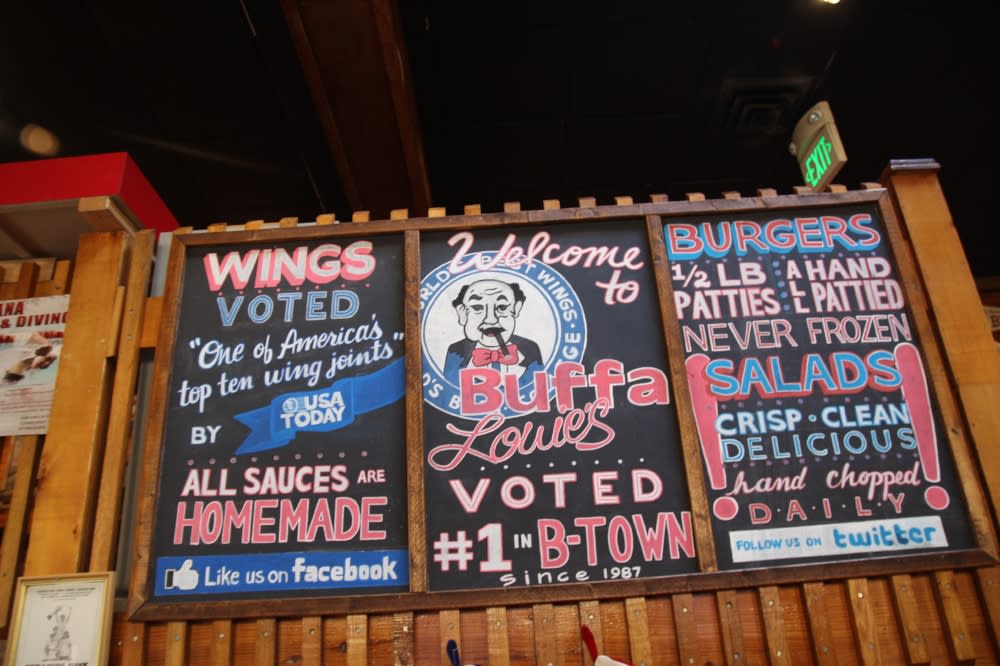 WINGS
VOTED
"One of America's
top ten wing joints"
BY
USA
TODAY
ALL SAUCES ARE
HOMEMADE
Like us on facebook
Welcome
to
WINGS
Buffa
Louie's
VOTED
#1 IN B-TOWN
since 1987
BURGERS
1/2 LB
PATTIES
ALL HAND
PATTIED
NEVER FROZEN
SALADS
CRISP · CLEAN
DELICIOUS
hand chopped
DAILY
FOLLOW US ON twitter
EXIT
ANA
& DIVING